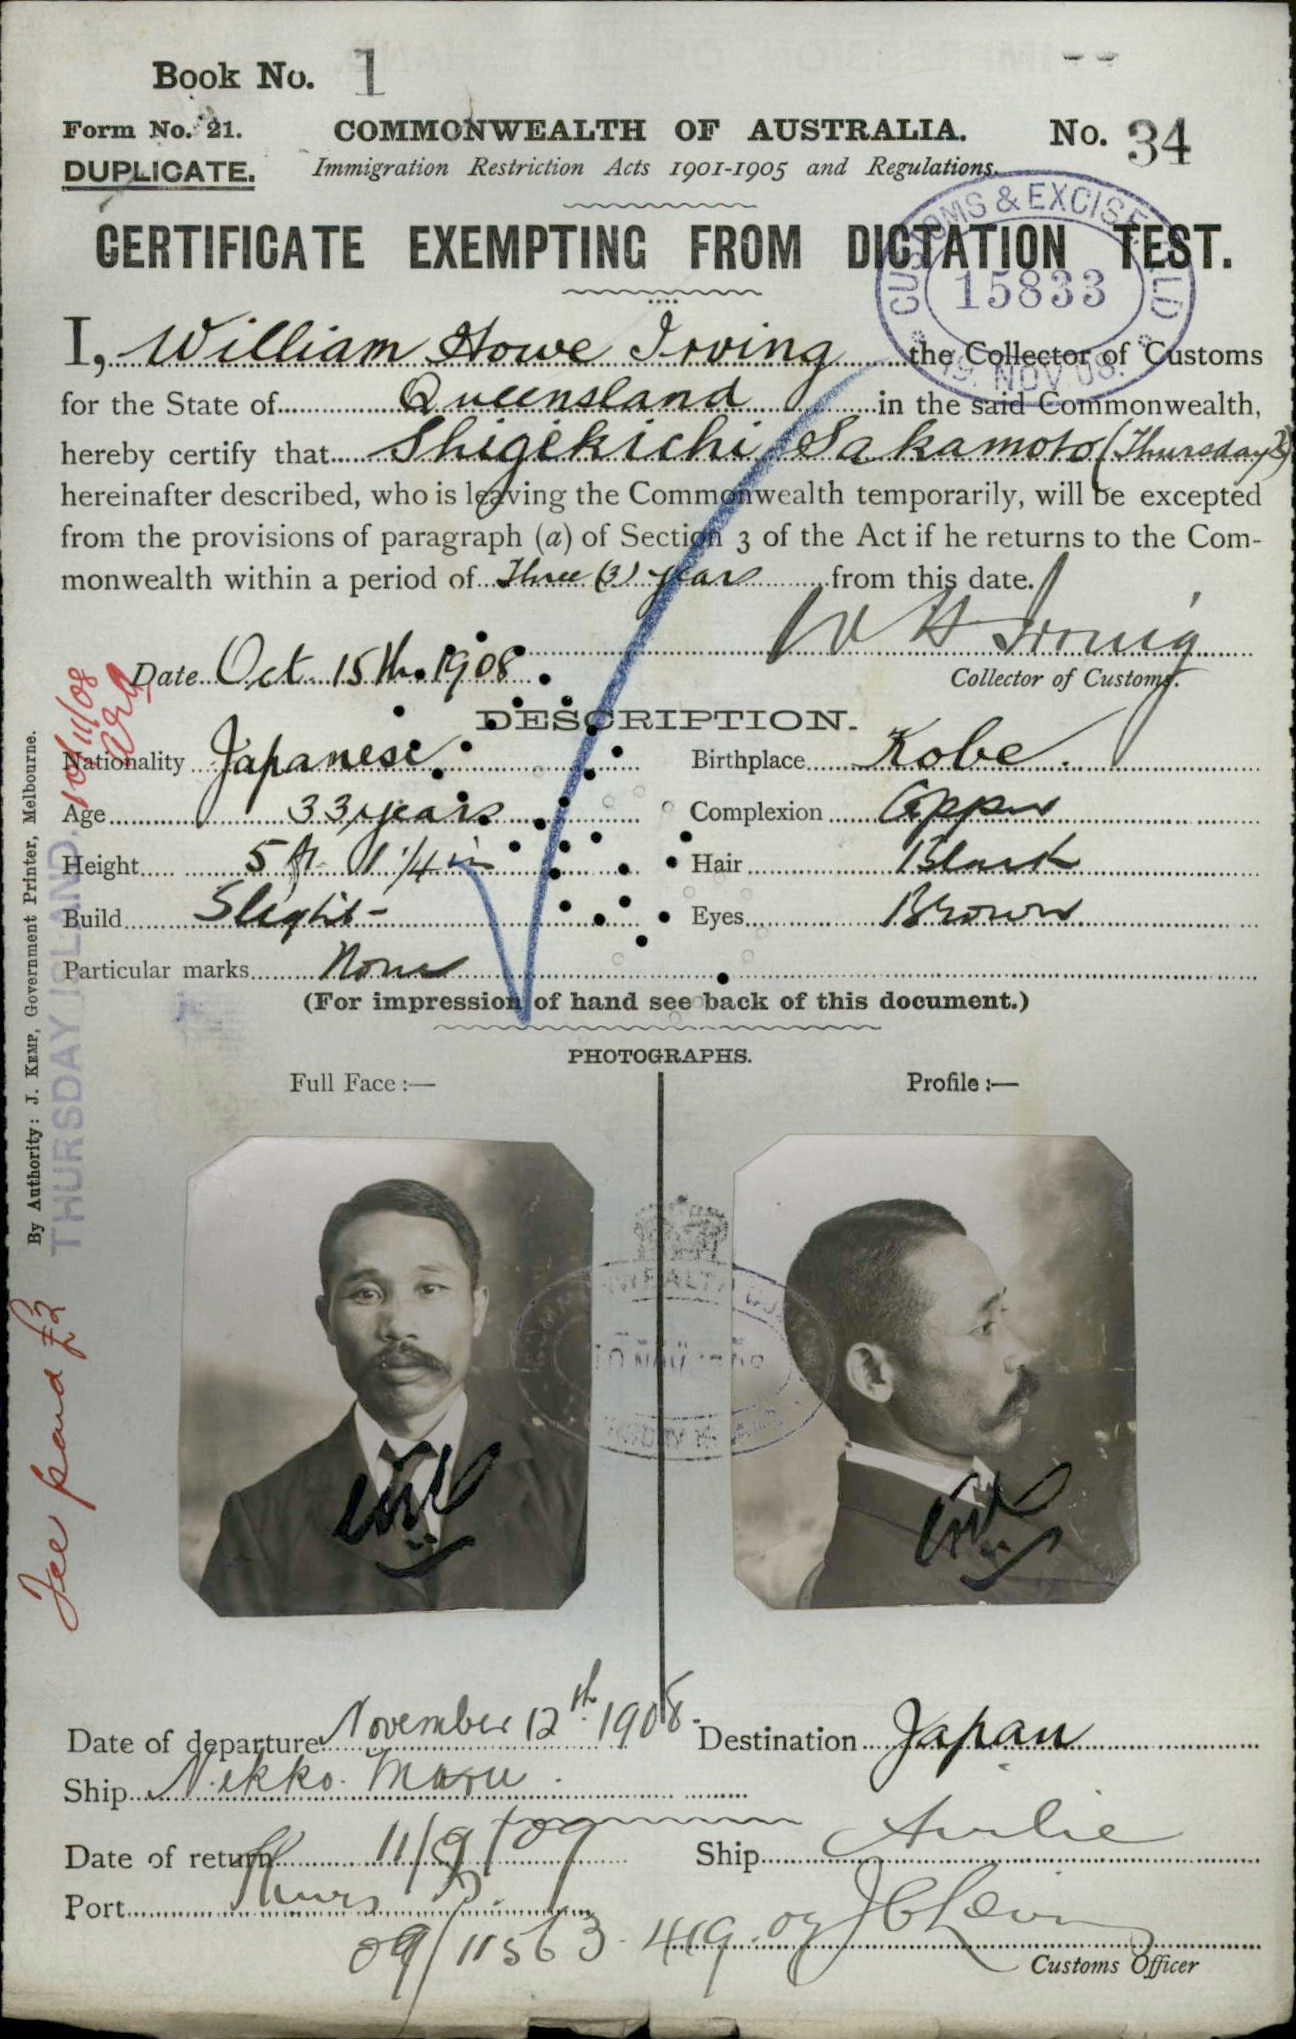 Book No. 1
Form No. 21. COMMONWEALTH OF AUSTRALIA. No. 34
DUPLICATE. Immigration Restriction Acts 1901-1905 and Regulations.
CUSTOMS & EXCISE QLD
15833
19. NOV. 08.
CERTIFICATE EXEMPTING FROM DICTATION TEST.
I, William Howe Irving the Collector of Customs
for the State of Queensland in the said Commonwealth,
hereby certify that Shigekichi Sakamoto (Thursday Is)
hereinafter described, who is leaving the Commonwealth temporarily, will be excepted
from the provisions of paragraph (a) of Section 3 of the Act if he returns to the Com-
monwealth within a period of Three (3) years from this date.
W H Irving
Date Oct. 15th. 1908 Collector of Customs.
10/11/08
DESCRIPTION.
Nationality Japanese Birthplace Kobe.
Age 33 years Complexion Copper
Height 5 ft 1 1/4 in Hair Black
Build Slight- Eyes Brown
Particular marks None
(For impression of hand see back of this document.)
PHOTOGRAPHS.
Full Face :— Profile :—
By Authority: J. KEMP, Government Printer, Melbourne.
THURSDAY ISLAND
Fee paid £2
Date of departure November 12th. 1908. Destination Japan
Ship Nikko Maru.
Date of return 11/9/09 Ship Airlie
Port Thurs. I.
09/11563 419.09
Customs Officer